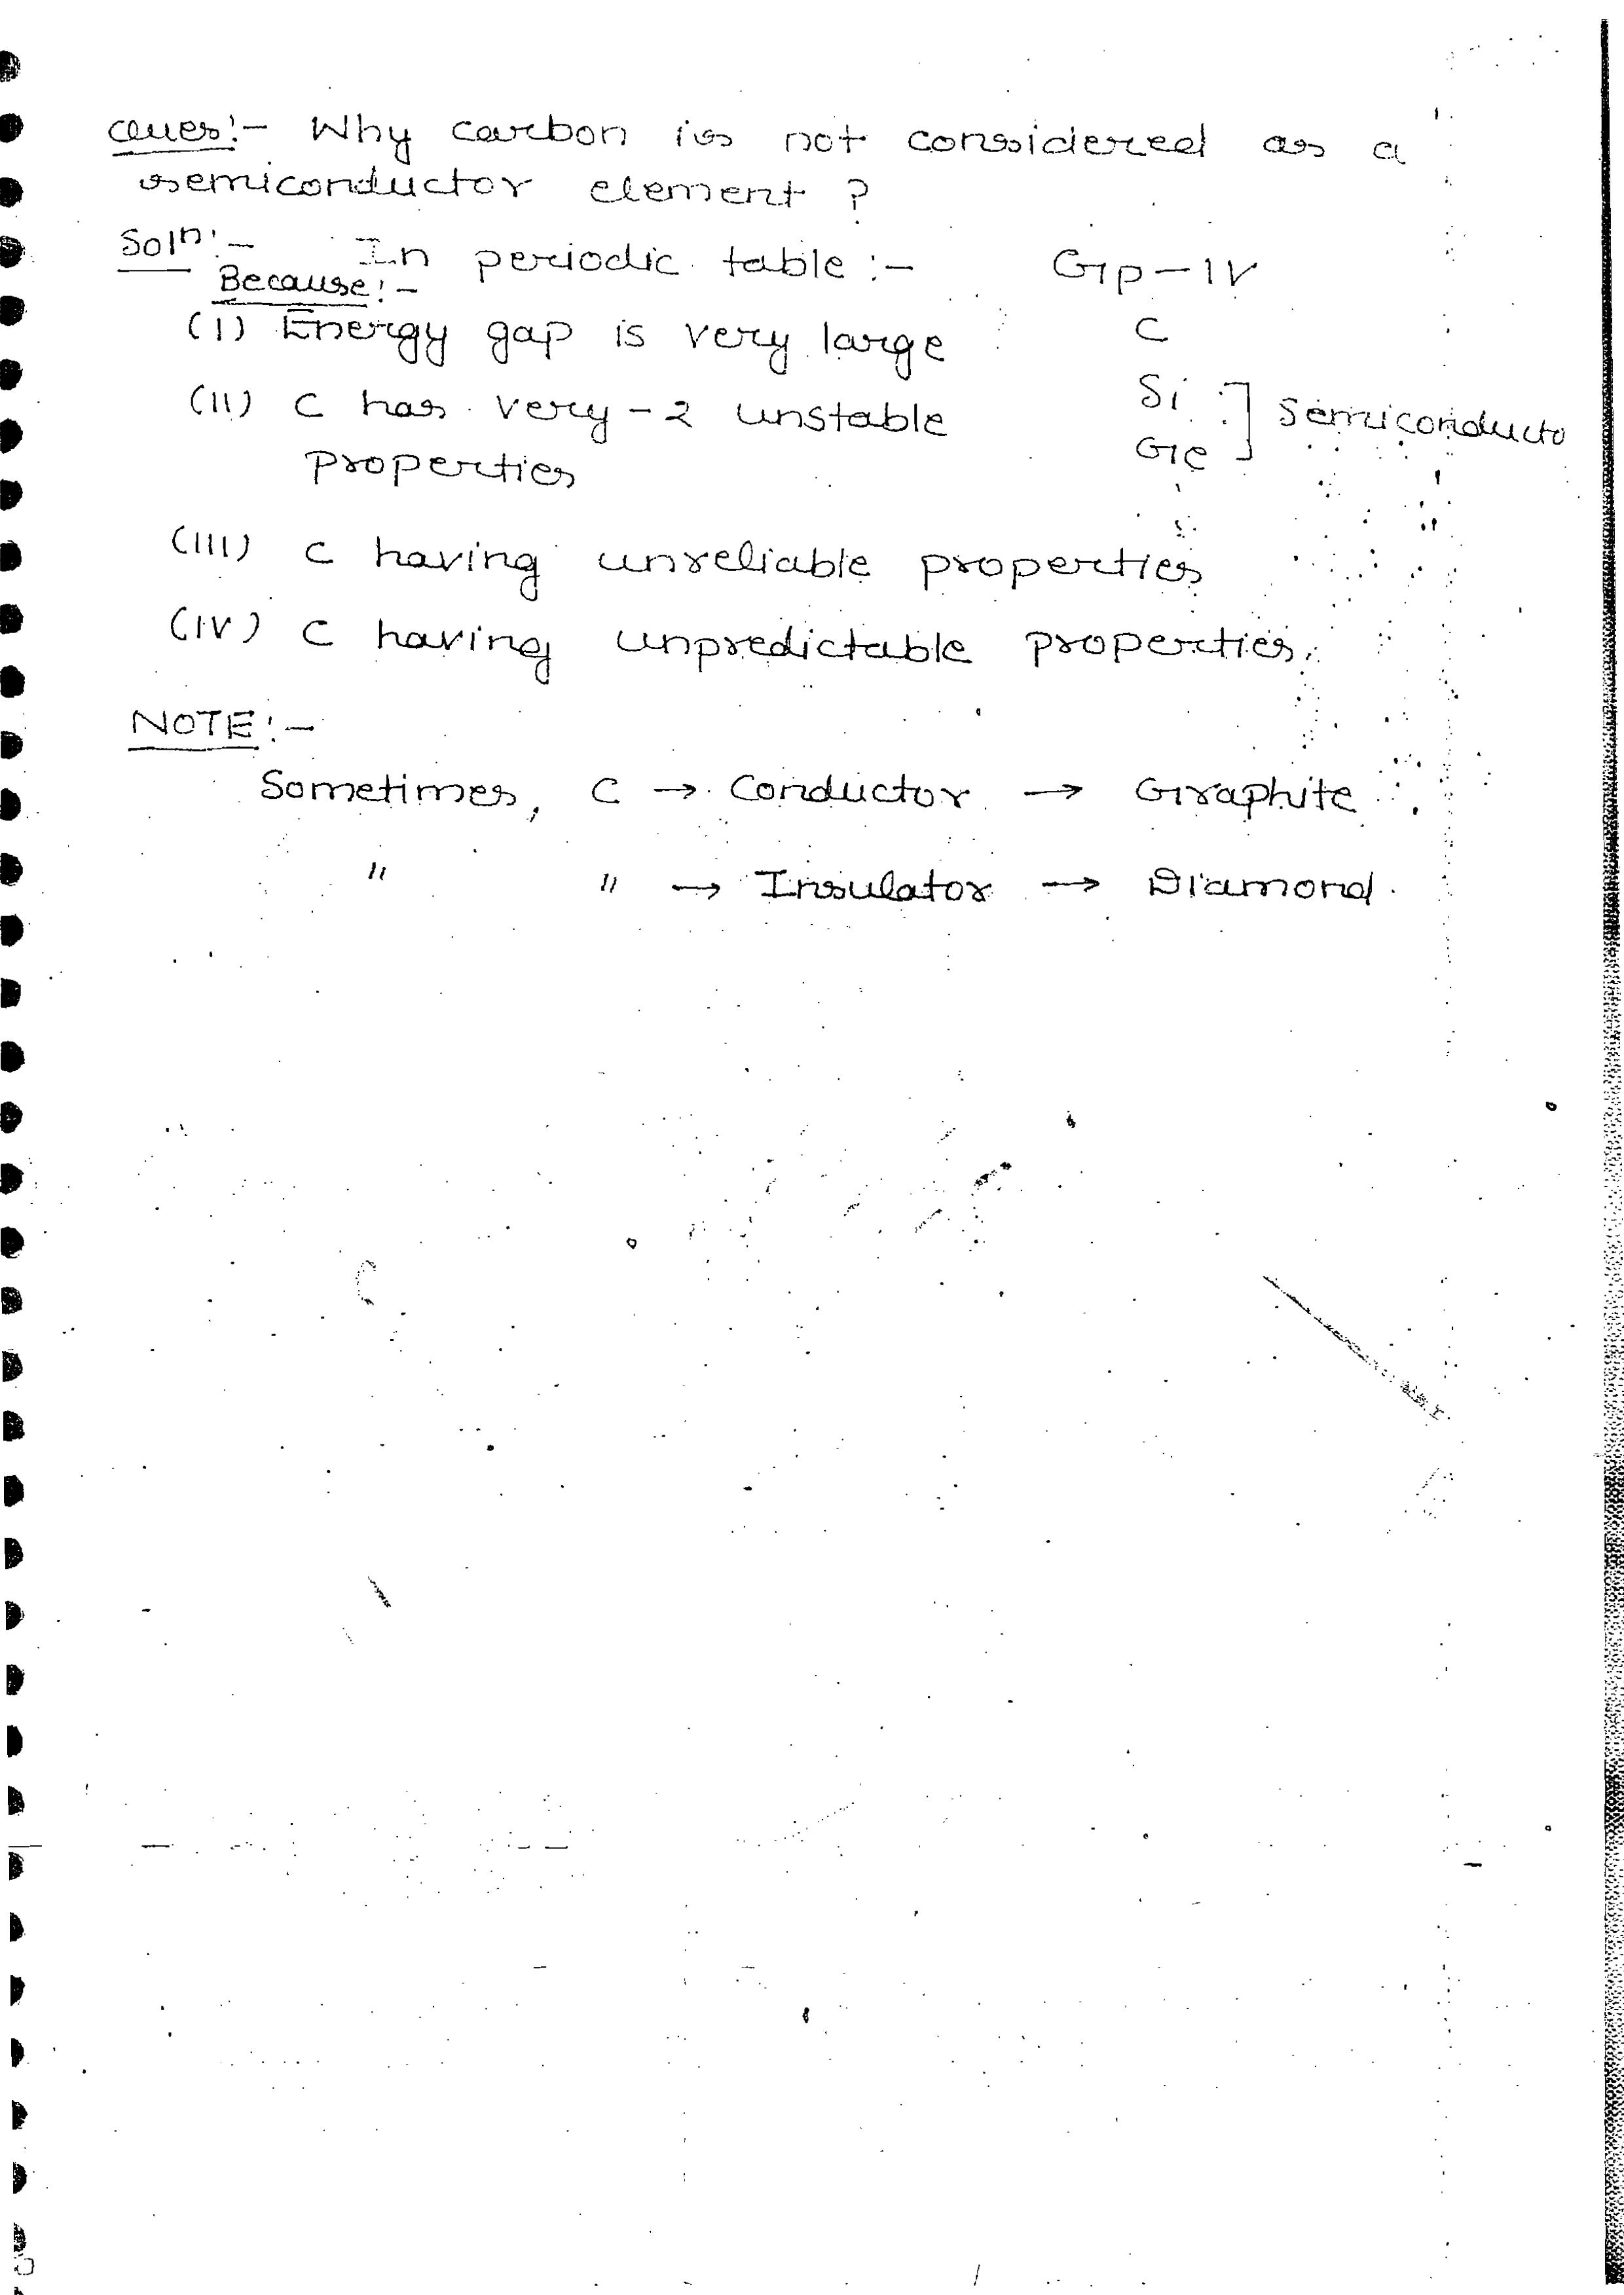 Ques:- Why carbon is not considered as a
semiconductor element ?
Soln:- In periodic table :- Gp-IV
Because:-
(I) Energy gap is very large C
Si
(II) C has very-2 unstable Semiconducto
properties Ge
(III) C having unreliable properties
(IV) C having unpredictable properties.
NOTE:-
Sometimes, C → Conductor → Graphite
" " → Insulator → Diamond.